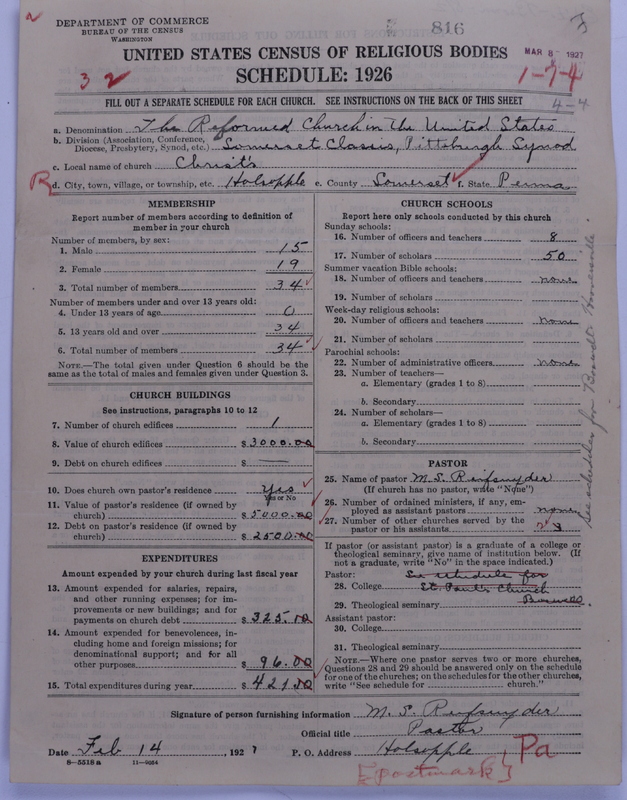 DEPARTMENT OF COMMERCE
BUREAU OF THE CENSUS
WASHINGTON
816
MAR 8 1927
UNITED STATES CENSUS OF RELIGIOUS BODIES
SCHEDULE: 1926
32
1-7-4
4-4
FILL OUT A SEPARATE SCHEDULE FOR EACH CHURCH. SEE INSTRUCTIONS ON THE BACK OF THIS SHEET
a. Denomination The Reformed Church in The United States
b. Division (Association, Conference, Diocese, Presbytery, Synod, etc.) Somerset Classis, Pittsburgh Synod
c. Local name of church Christ's
R d. City, town, village, or township, etc. Holsopple e. County Somerset f. State Penna
MEMBERSHIP
Report number of members according to definition of
member in your church
Number of members, by sex:
1. Male 15
2. Female 19
3. Total number of members 34
Number of members under and over 13 years old:
4. Under 13 years of age 0
5. 13 years old and over 34
6. Total number of members 34
NOTE.—The total given under Question 6 should be
same as the total of males and females given under Question 3.
CHURCH BUILDINGS
See instructions, paragraphs 10 to 12
7. Number of church edifices 1
8. Value of church edifices $3000.00
9. Debt on church edifices $ —
10. Does church own pastor's residence Yes
Yes or No
11. Value of pastor's residence (if owned by
church) $5000.00
12. Debt on pastor's residence (if owned by
church) $2500.00
EXPENDITURES
Amount expended by your church during last fiscal year
13. Amount expended for salaries, repairs,
and other running expenses; for im-
provements or new buildings; and for
payments on church debt $325.00
14. Amount expended for benevolences, in-
cluding home and foreign missions; for
denominational support; and for all
other purposes $96.00
15. Total expenditures during year $421.00
CHURCH SCHOOLS
Report here only schools conducted by this church
Sunday schools:
16. Number of officers and teachers 8
17. Number of scholars 50
Summer vacation Bible schools:
18. Number of officers and teachers none
19. Number of scholars
Week-day religious schools:
20. Number of officers and teachers none
21. Number of scholars
Parochial schools:
22. Number of administrative officers none
23. Number of teachers—
a. Elementary (grades 1 to 8)
b. Secondary
24. Number of scholars—
a. Elementary (grades 1 to 8)
b. Secondary
PASTOR
25. Name of pastor M. S. Reifsnyder
(If church has no pastor, write "None")
26. Number of ordained ministers, if any, em-
ployed as assistant pastors none
27. Number of other churches served by the
pastor or his assistants 3
If pastor (or assistant pastor) is a graduate of a college or
theological seminary, give name of institution below. (If
not a graduate, write "No" in the space indicated.)
Pastor: See schedule for
28. College St. Paul's Church
29. Theological seminary Boswell.
Assistant pastor:
30. College
31. Theological seminary
NOTE.—Where one pastor serves two or more churches,
Questions 28 and 29 should be answered only on the schedule
for one of the churches; on the schedules for the other churches,
write "See schedule for church."
See schedules for Boswell
Signature of person furnishing information M. S. Reifsnyder
Official title Pastor
Date Feb 14 1927 P. O. Address Holsopple, Pa
8—5518 a 11—9064
[postmark]